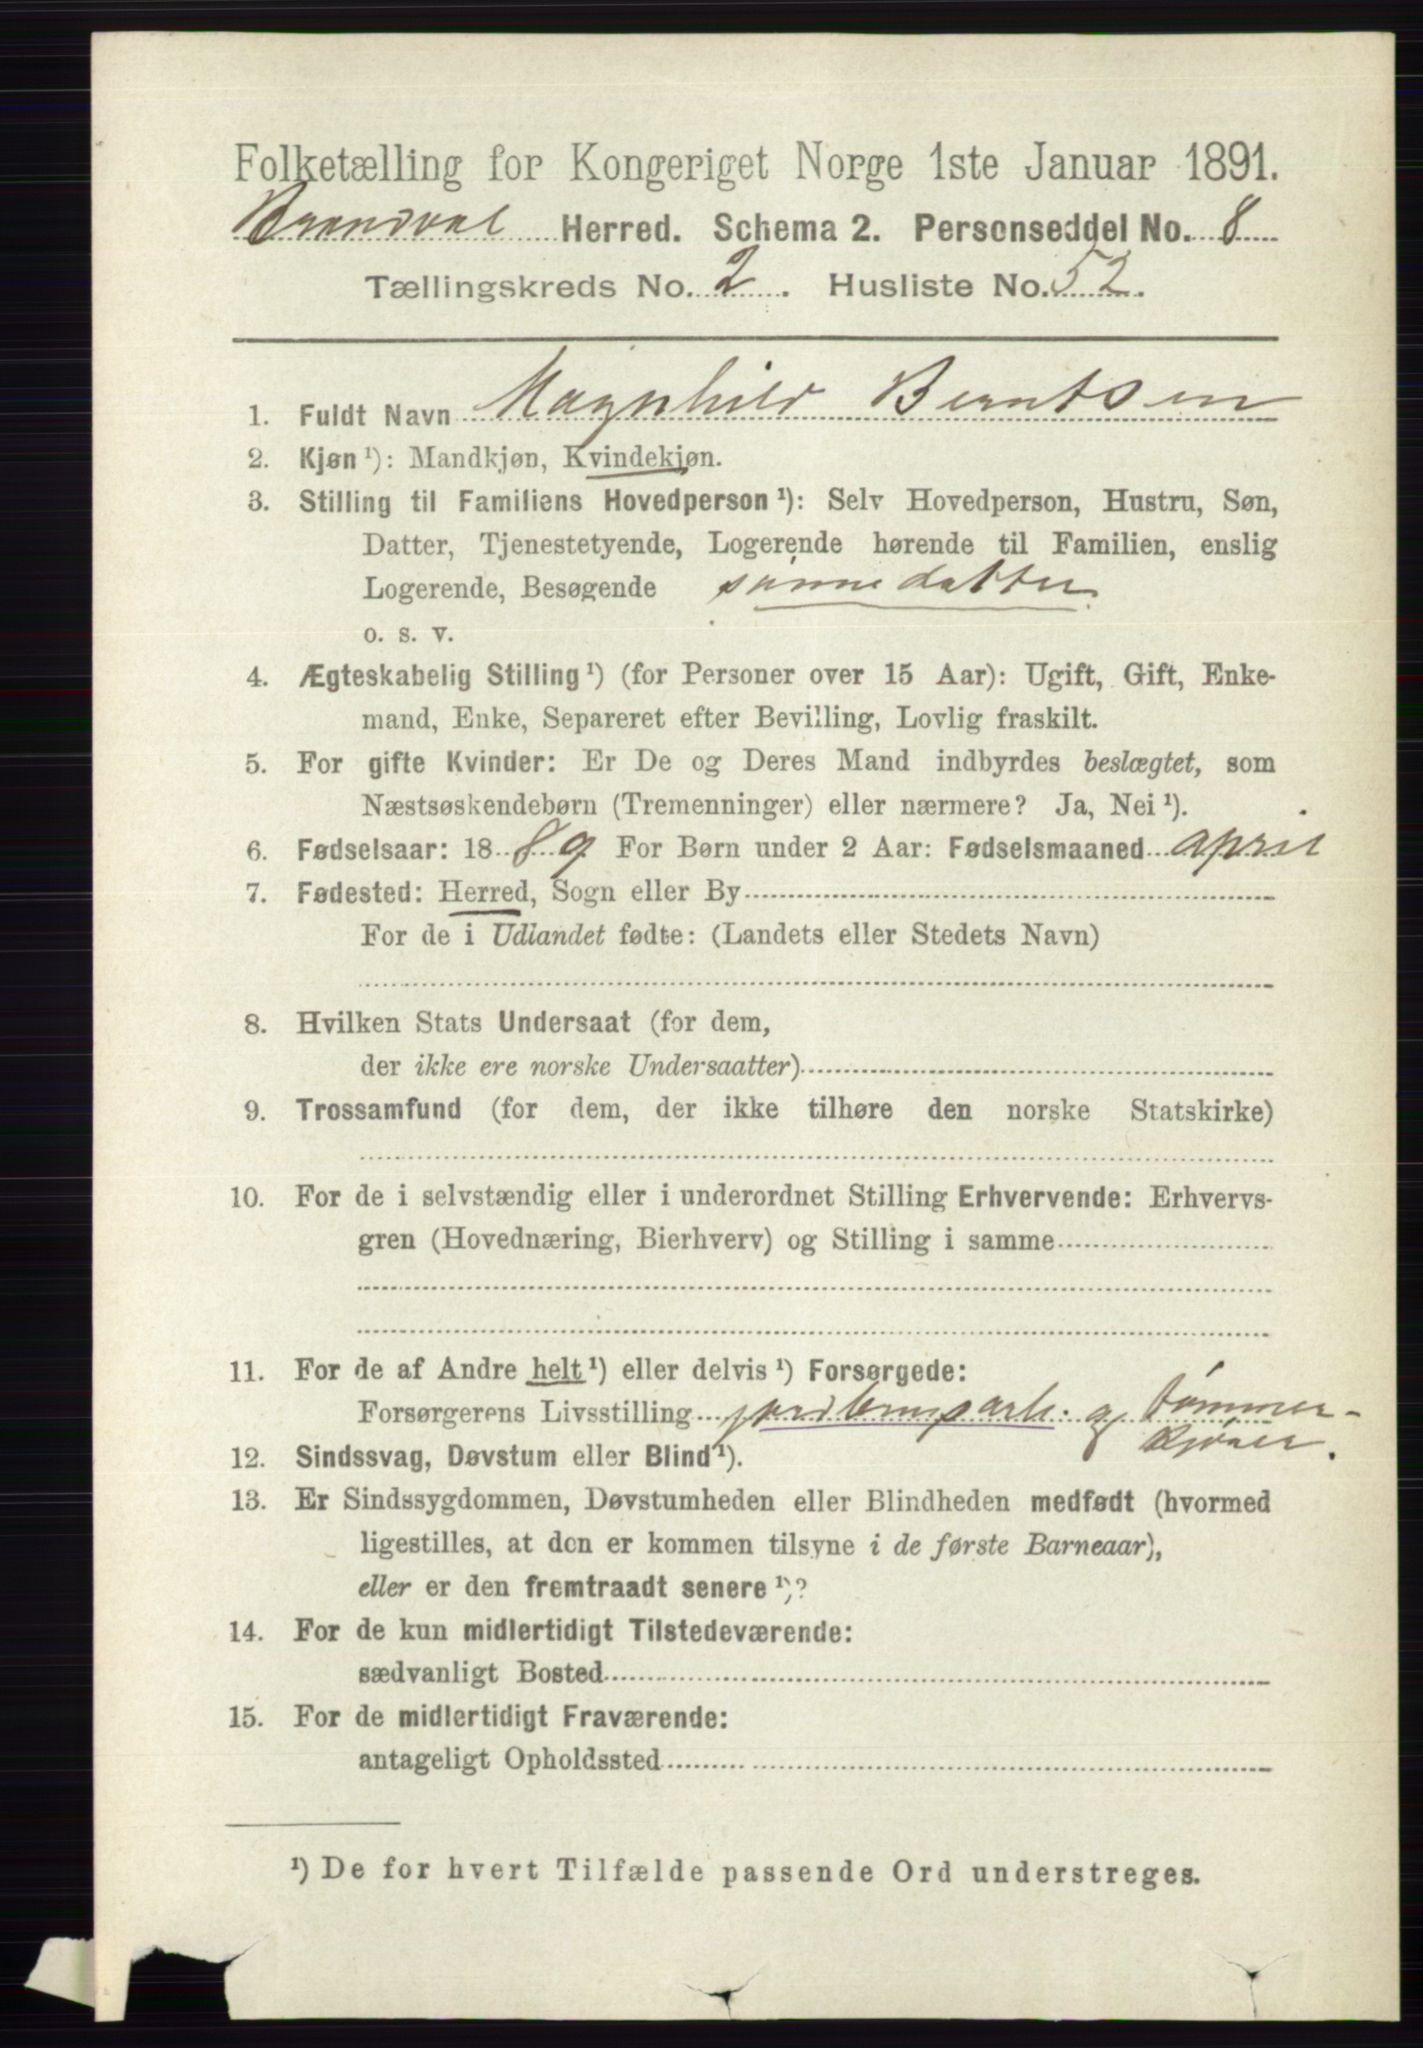 Folketælling for Kongeriget Norge 1ste Januar 1891.
Brandval Herred. Schema 2. Personseddel No. 8
Tællingskreds No. 2. Husliste No. 52.
1. Fuldt Navn Magnhild Berntsen
2. Kjøn ¹): Mandkjøn, Kvindekjøn.
3. Stilling til Familiens Hovedperson ¹): Selv Hovedperson, Hustru, Søn,
Datter, Tjenestetyende, Logerende hørende til Familien, enslig
Logerende, Besøgende sønnedatter.
o. s. v.
4. Ægteskabelig Stilling ¹) (for Personer over 15 Aar): Ugift, Gift, Enke-
mand, Enke, Separeret efter Bevilling, Lovlig fraskilt.
5. For gifte Kvinder: Er De og Deres Mand indbyrdes beslægtet, som
Næstsøskendebørn (Tremenninger) eller nærmere? Ja, Nei ¹).
6. Fødselsaar: 1889 For Børn under 2 Aar: Fødselsmaaned april
7. Fødested: Herred, Sogn eller By
For de i Udlandet fødte: (Landets eller Stedets Navn)
8. Hvilken Stats Undersaat (for dem,
der ikke ere norske Undersaatter)
9. Trossamfund (for dem, der ikke tilhøre den norske Statskirke)
10. For de i selvstændig eller i underordnet Stilling Erhvervende: Erhvervs-
gren (Hovednæring, Bierhverv) og Stilling i samme
11. For de af Andre helt ¹) eller delvis ¹) Forsørgede:
Forsørgerens Livsstilling jordbrugsarb. og tømmer-
kjører.
12. Sindssvag, Døvstum eller Blind ¹).
13. Er Sindssygdommen, Døvstumheden eller Blindheden medfødt (hvormed
ligestilles, at den er kommen tilsyne i de første Barneaar),
eller er den fremtraadt senere ¹)?
14. For de kun midlertidigt Tilstedeværende:
sædvanligt Bosted
15. For de midlertidigt Fraværende:
antageligt Opholdssted
¹) De for hvert Tilfælde passende Ord understreges.